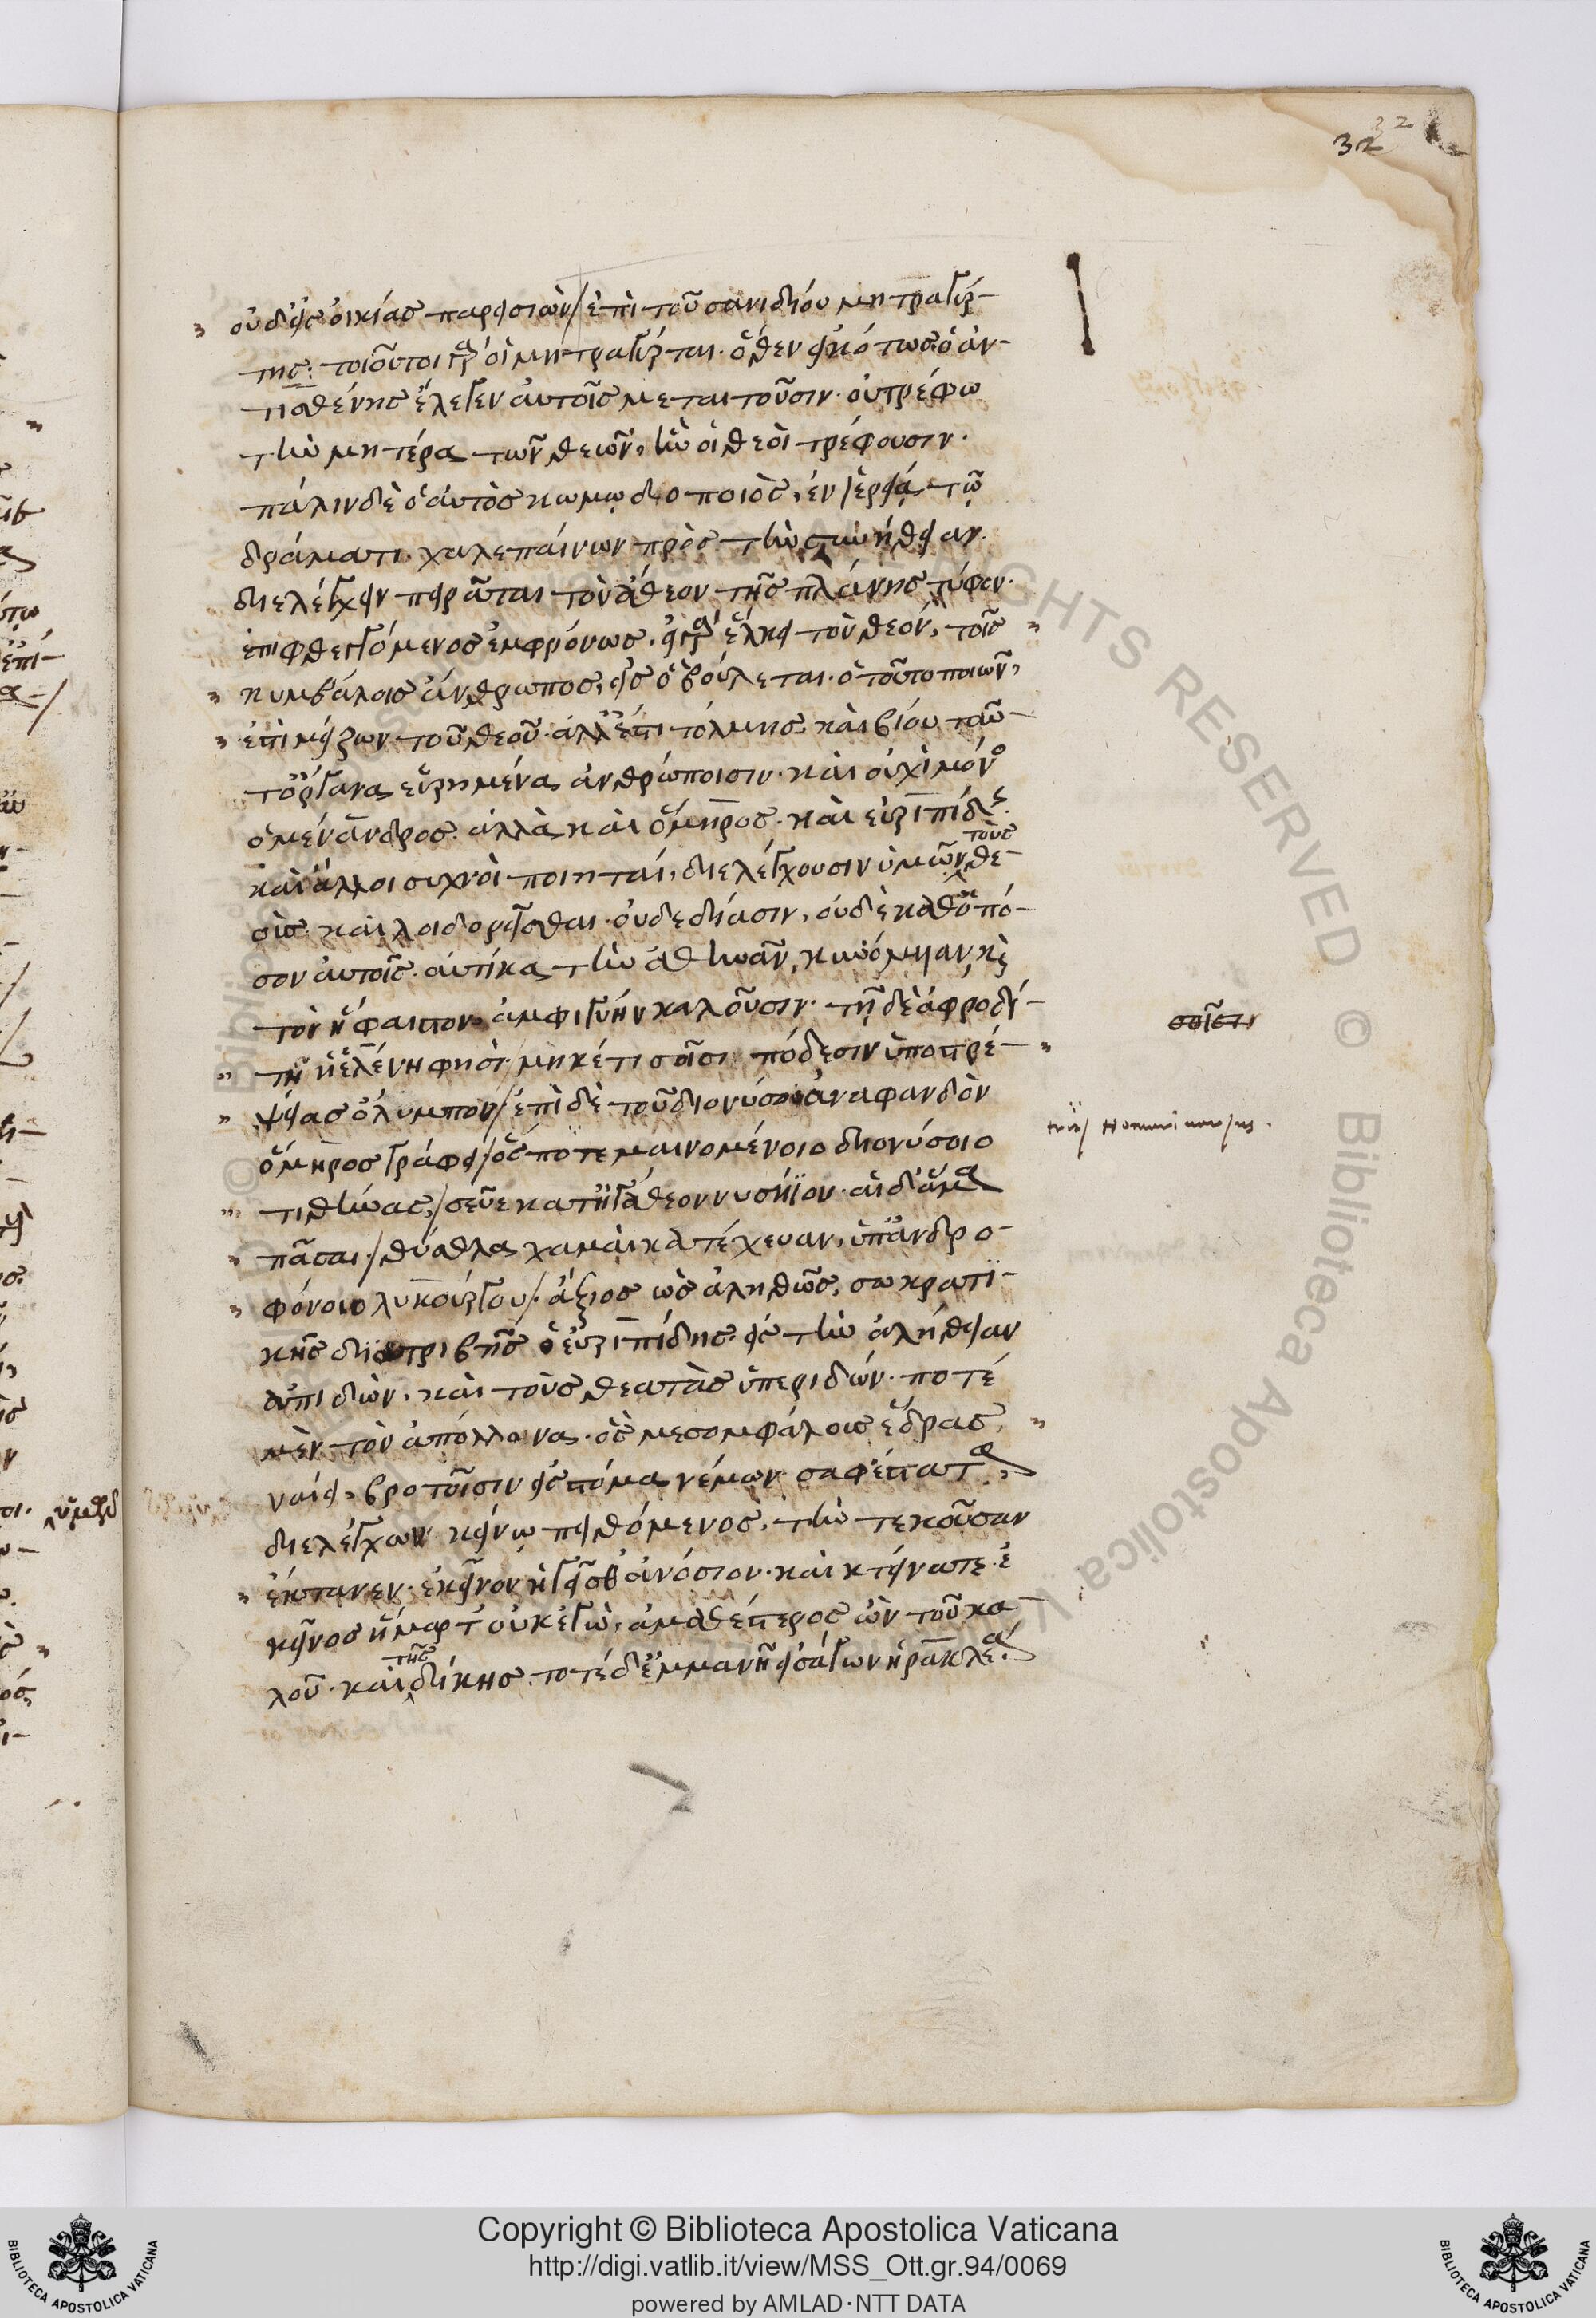 32
32
οὐδ' εἰς οἰκίας παρεισιὼν/ ἐπὶ τοῦ σανιδίου μητραγύρ-
της: τοιοῦτοι γὰρ οἱ μητραγύρται. ὅθεν εἰκότως ὁ ἀν-
τισθένης ἔλεγεν αὐτοῖς μεταιτοῦσιν. οὐ τρέφω
τὴν μητέρα τῶν θεῶν, ἣν οἱ θεοὶ τρέφουσιν.
πάλιν δὲ ὁ αὐτὸς κωμῳδιοποιὸς, ἐν ἱερείᾳ τῷ
δράματι. χαλεπαίνων πρὸς τὴν συνήθειαν.
διελέγχειν πειρᾶται τὸν ἄθεον τῆς πλάνης τύφον.
ἐπιφθεγγόμενος ἐμφρόνως. εἰ γὰρ ἕλκει τὸν θεόν, τοῖς
κυμβάλοις ἄνθρωπος, εἰς ὃ βούλεται. ὁ τοῦτο ποιῶν,
ἐστὶ μείζων τοῦ θεοῦ. ἀλλ' ἔστι τόλμης καὶ βίου ταῦ-
τ' ὄργανα εὑρημένα ἀνθρώποισιν. καὶ οὐχὶ μόνος
ὁ μένανδρος. ἀλλὰ καὶ ὅμηρος. καὶ εὐριπίδης.
καὶ ἄλλοι συχνοὶ ποιηταί, διελέγχουσιν ὑμῶν τοὺς θε-
οὺς. καὶ λοιδορεῖσθαι. οὐ δεδίασιν, οὐδὲ καθ' ὁπό-
σον αὐτοῖς. αὐτίκα τὴν ἀθηνᾶν, κυνόμυιαν, καὶ
τὸν ἥφαιστον ἀμφιγυήν καλοῦσιν. τῇ δὲ ἀφροδί-
τῃ ἡ ἑλένη φησί. μηκέτι σοῖσι πόδεσιν ὑποστρέ-
ψειας ὄλυμπον/ ἐπὶ δὲ τοῦ διονύσου ἀναφανδὸν
ὅμηρος γράφει/ ὅς ποτε μαινομένοιο διονύσοιο
τιθήνας,/ σεῦε κατ' ἠγάθεον νυσήϊον. αἱ δ' ἅμα
πᾶσαι./ θύσθλα χαμαὶ κατέχευαν, ὑπ' ἀνδρο-
φόνοιο λυκούργου/. ἄξιος ὡς ἀληθῶς, σωκρατι-
κῆς διατριβῆς ὁ εὐριπίδης. εἰς τὴν ἀλήθειαν
ἀπιδών. καὶ τοὺς θεατὰς ὑπεριδών. ποτέ
μὲν τὸν ἀπόλλωνα. ὃς μεσομφάλους ἕδρας,
ναίει, βροτοῖσιν στόμα νέμων σαφέστατα,
διελέγχων κείνῳ πειθόμενος, τὴν τεκοῦσαν
ἔκτανεν. ἐκεῖνον ἡγεῖσθ' ἀνόσιον. καὶ κτείνατε. ἐ
κεῖνος ἥμαρτ' οὐκ ἐγώ, ἀμαθέστερος ὢν τοῦ κα
λοῦ. καὶ τῆς δίκης. τοτέ δ' ἐμμανῆ εἰσάγων ἡρακλέα.
σοῖσιν
tres Homeri versus.
Copyright © Biblioteca Apostolica Vaticana
http://digi.vatlib.it/view/MSS_Ott.gr.94/0069
powered by AMLAD·NTT DATA